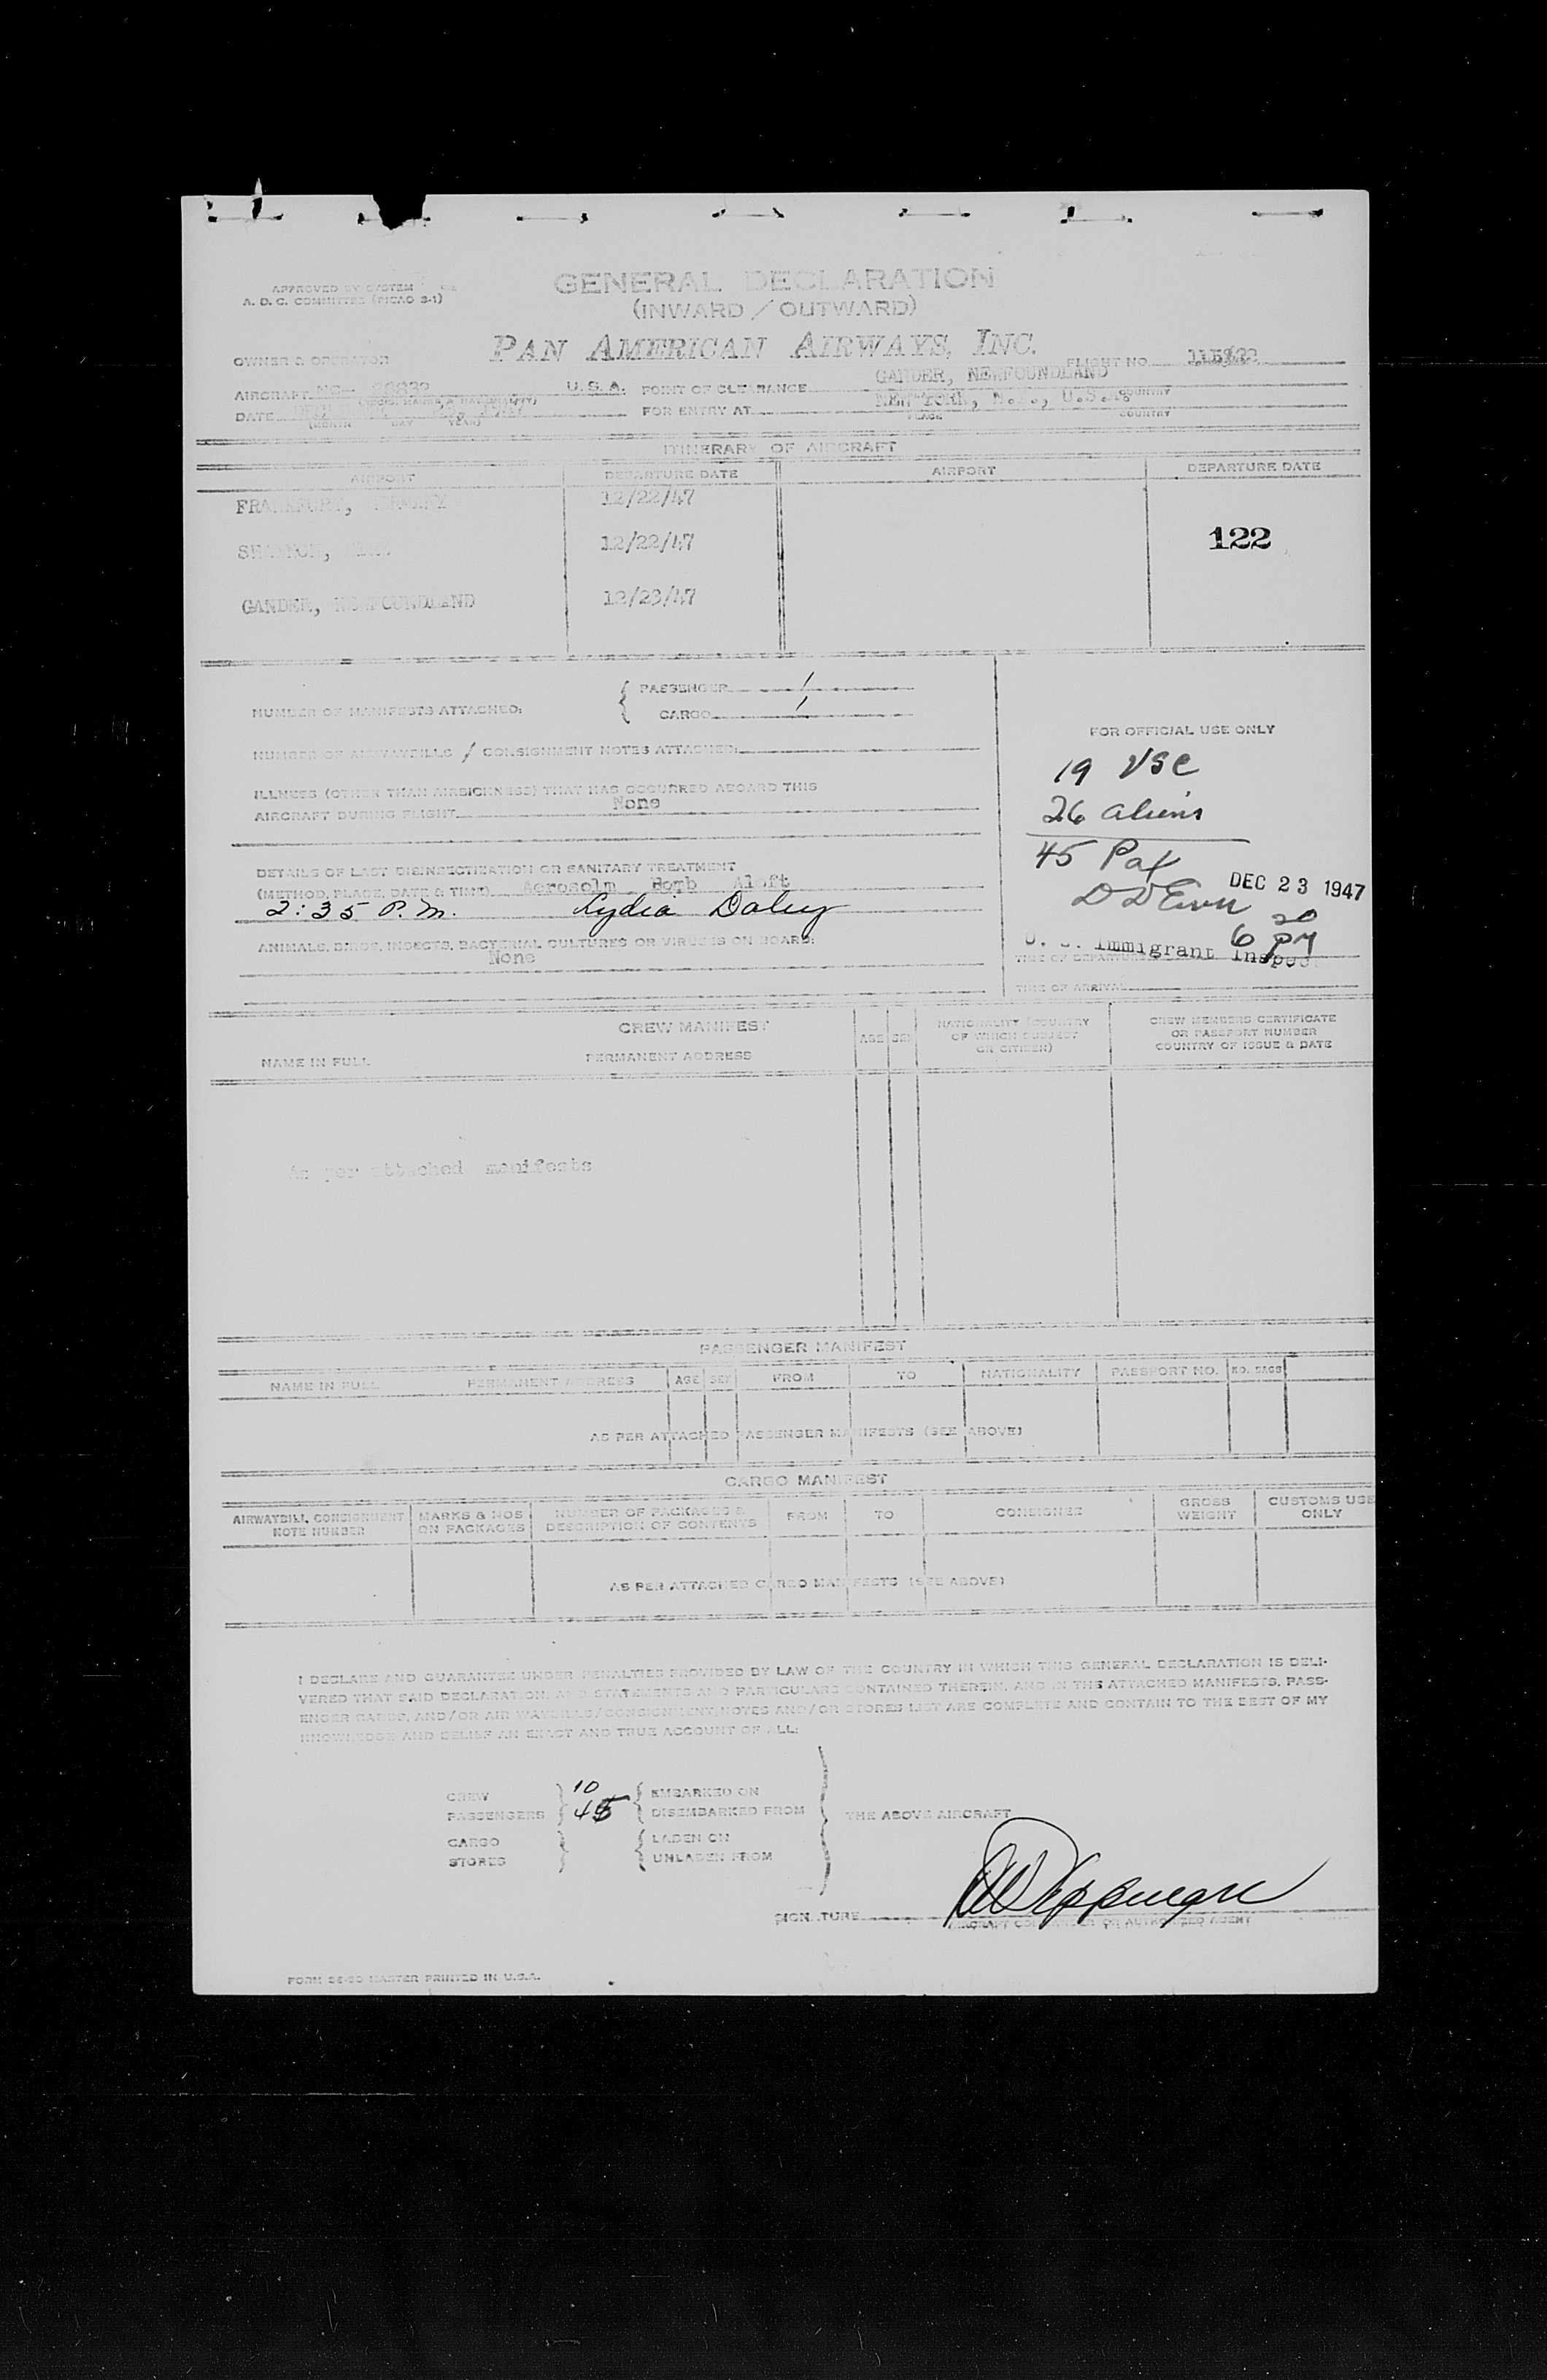 GENERAL DECLARATION
(INWARD / OUTWARD)
APPROVED BY SYSTEM
A. D. C. COMMITTEE (PICAO S-1)
PAN AMERICAN AIRWAYS, INC.
OWNER & OPERATOR
FLIGHT NO.
AIRCRAFT NC- 88832 U. S. A. POINT OF CLEARANCE GANDER, NEWFOUNDLAND
COUNTRY
DATE FOR ENTRY AT NEW YORK, N.Y., U.S.A.
(MONTH DAY YEAR) PLACE COUNTRY
ITINERARY OF AIRCRAFT
AIRPORT DEPARTURE DATE AIRPORT DEPARTURE DATE
FRANKFURT, GERMANY 12/22/47
122
SHANNON, 12/22/47
GANDER, NEWFOUNDLAND 12/23/47
NUMBER OF MANIFESTS ATTACHED: PASSENGER 1
CARGO 1
NUMBER OF AIRWAYBILLS / CONSIGNMENT NOTES ATTACHED:
ILLNESS (OTHER THAN AIRSICKNESS) THAT HAS OCCURRED ABOARD THIS
AIRCRAFT DURING FLIGHT None
DETAILS OF LAST DISINSECTIZATION OR SANITARY TREATMENT
(METHOD, PLACE, DATE & TIME) Aerosolm Bomb Aloft
2:35 P.M. Lydia Daley
ANIMALS, BIRDS, INSECTS, BACTERIAL CULTURES OR VIRUSES ON BOARD:
None
FOR OFFICIAL USE ONLY
19 USC
26 aliens
45 Pax
DEC 23 1947
6 20 PM
U. S. Immigrant Inspec
TIME OF DEPARTURE
TIME OF ARRIVAL
CREW MANIFEST
NAME IN FULL PERMANENT ADDRESS AGE SEX NATIONALITY (COUNTRY
OF WHICH SUBJECT
OR CITIZEN)
CREW MEMBERS CERTIFICATE
OR PASSPORT NUMBER
COUNTRY OF ISSUE & DATE
As per attached manifests
PASSENGER MANIFEST
NAME IN FULL PERMANENT ADDRESS AGE SEX FROM TO NATIONALITY PASSPORT NO. NO. BAGS
AS PER ATTACHED PASSENGER MANIFESTS (SEE ABOVE)
CARGO MANIFEST
AIRWAYBILL CONSIGNMENT
NOTE NUMBER
MARKS & NOS
ON PACKAGES
NUMBER OF PACKAGES &
DESCRIPTION OF CONTENTS
FROM TO CONSIGNEE
GROSS
WEIGHT
CUSTOMS USE
ONLY
AS PER ATTACHED CARGO MANIFESTS (SEE ABOVE)
I DECLARE AND GUARANTEE UNDER PENALTIES PROVIDED BY LAW OF THE COUNTRY IN WHICH THIS GENERAL DECLARATION IS DELI-
VERED THAT SAID DECLARATION, AND STATEMENTS AND PARTICULARS CONTAINED THEREIN, AND IN THE ATTACHED MANIFESTS, PASS-
ENGER CARDS, AND/OR AIR WAYBILLS/CONSIGNMENT NOTES AND/OR STORES LIST ARE COMPLETE AND CONTAIN TO THE BEST OF MY
KNOWLEDGE AND BELIEF AN EXACT AND TRUE ACCOUNT OF ALL:
CREW 10 EMBARKED ON
PASSENGERS 45 DISEMBARKED FROM THE ABOVE AIRCRAFT
CARGO LADEN ON
STORES UNLADEN FROM
SIGNATURE
AIRCRAFT COMMANDER OR AUTHORIZED AGENT
FORM MASTER PRINTED IN U.S.A.